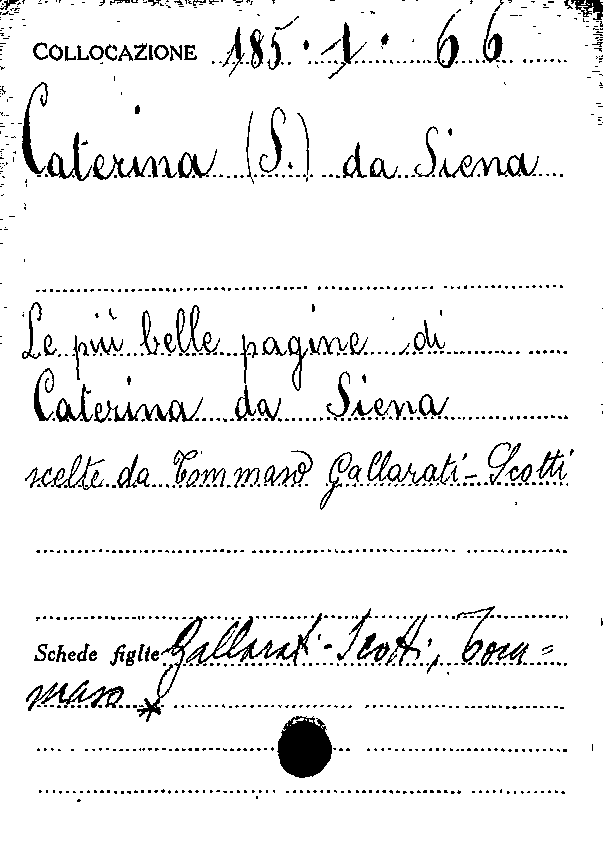 COLLOCAZIONE 185 · 1 · 66
Caterina (S.) da Siena
Le più belle pagine di
Caterina da Siena
scelte da Tommaso Gallarati-Scotti
Schede figlie Gallarati-Scotti, Tom=
maso *